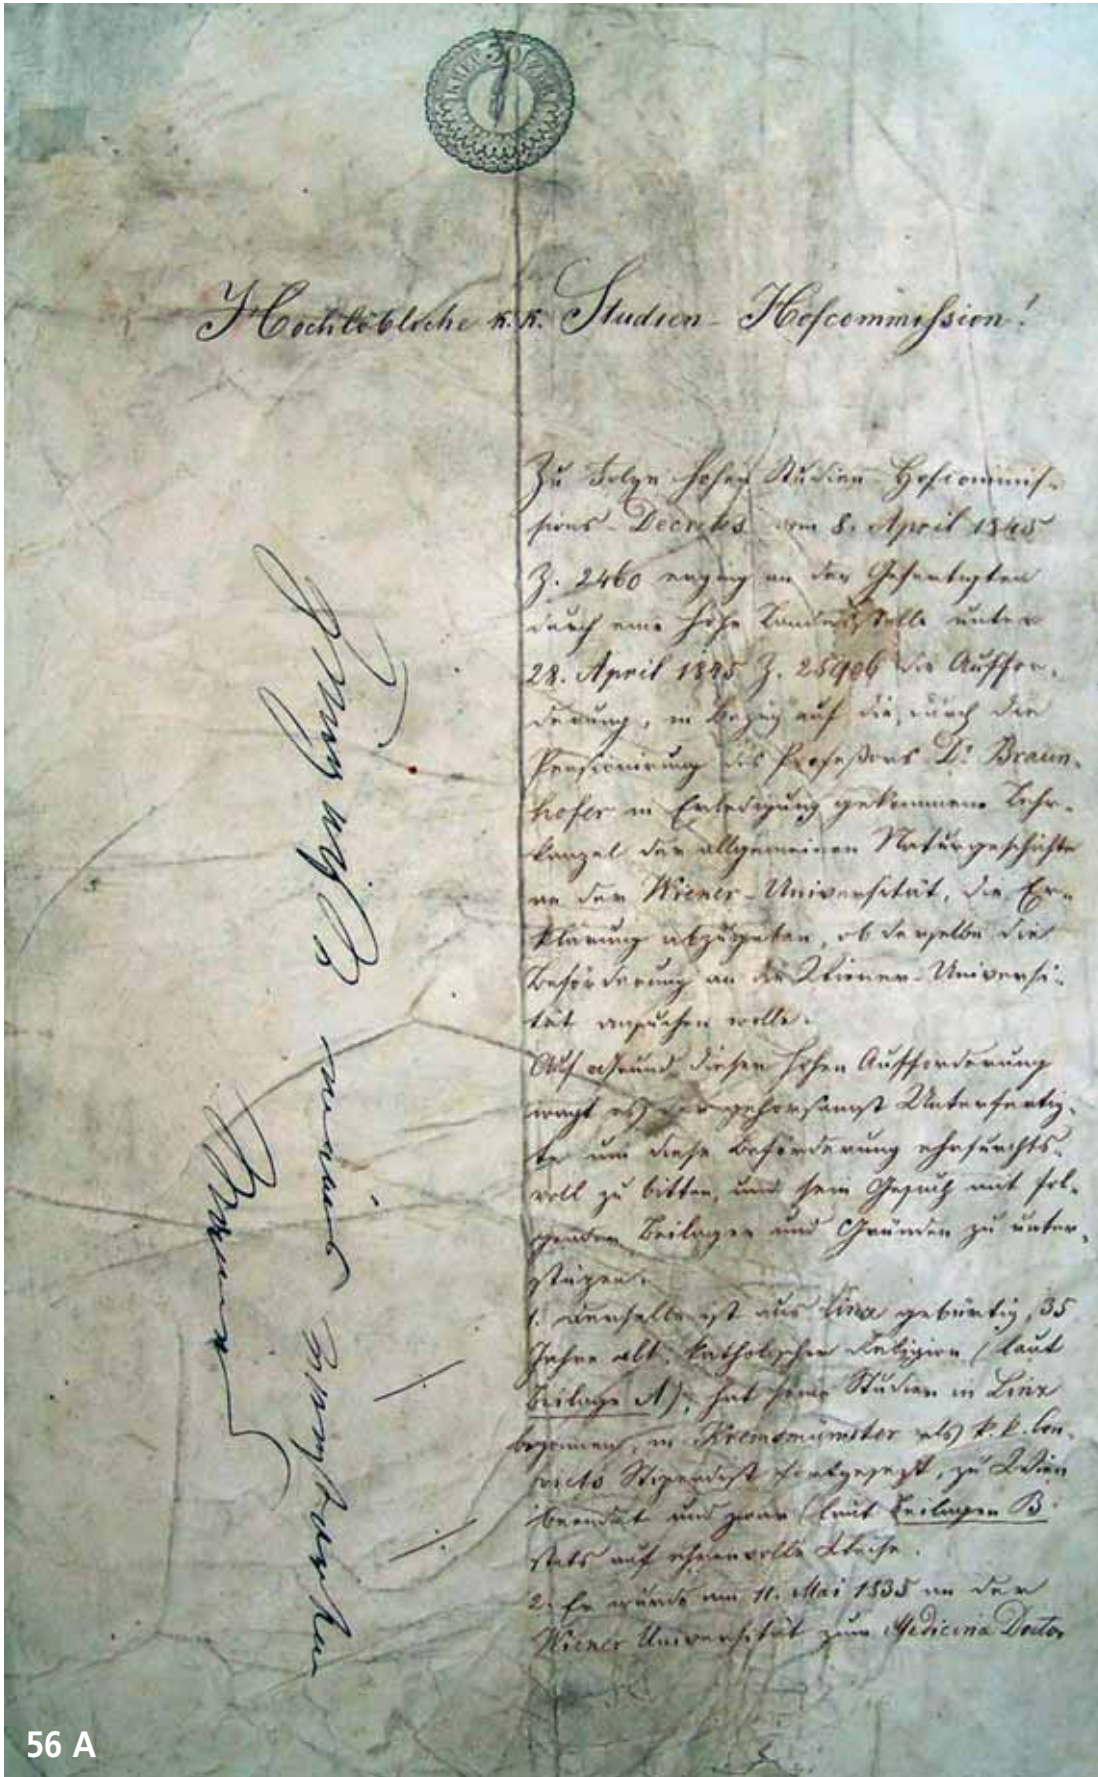 30
Hochlöbliche k. k. Studien-Hofcommission!
Zu Folge hohen Studien-Hofcommis-
sions-Decretes vom 8. April 1845
Z. 2460 erging an den Gefertigten
durch eine hohe Landesstelle unter
28. April 1845 Z. die Auffor-
derung, in Bezug auf die, durch die
Pensionirung des Profeßors Dr. Braun-
hofer in Erledigung gekommene Lehr-
kanzel der allgemeinen Naturgeschichte
an der Wiener-Universität, die Er-
klärung abzugeben, ob derselbe die
Beförderung an die Wiener-Universi-
tät ansuchen wolle.
Auf Grund dieser hohen Aufforderung
wagt es der gehorsamst Unterfertig-
te um diese Beförderung ehrfurchts-
voll zu bitten, und sein Gesuch mit fol-
genden Beilagen und Gründen zu unter-
stützen.
1. Derselbe ist aus Linz gebürtig, 35
Jahre alt, katholischer Religion (laut
Beilage A), hat seine Studien in Linz
begonnen, in Kremsmünster als k. k. Con-
victs Stipendist fortgesetzt, zu Wien
beendet und zwar (laut Beilagen B
stets auf ehrenvolle Weise.
2. Er wurde am 11. Mai 1835 an der
Wiener Universität zum Medicina Doctor
56 A